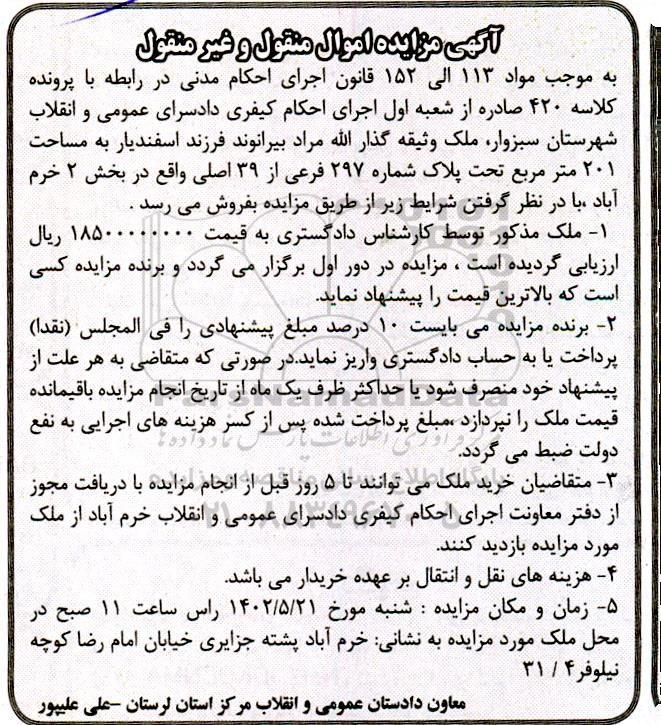 آگهی مزایده اموال منقول و غیر منقول
به موجب مواد ۱۱۳ الی ۱۵۲ قانون اجرای احکام مدنی در رابطه با پرونده
کلاسه ۴۲۰ صادره از شعبه اول اجرای احکام کیفری دادسرای عمومی و انقلاب
شهرستان سبزوار، ملک وثیقه گذار الله مراد بیرانوند فرزند اسفندیار به مساحت
۲۰۱ متر مربع تحت پلاک شماره ۲۹۷ فرعی از ۳۹ اصلی واقع در بخش ۲ خرم
آباد ،با در نظر گرفتن شرایط زیر از طریق مزایده بفروش می رسد .
۱- ملک مذکور توسط کارشناس دادگستری به قیمت ۱۸۵۰۰۰۰۰۰۰۰ ریال
ارزیابی گردیده است ، مزایده در دور اول برگزار می گردد و برنده مزایده کسی
است که بالاترین قیمت را پیشنهاد نماید.
۲- برنده مزایده می بایست ۱۰ درصد مبلغ پیشنهادی را فی المجلس (نقدا)
پرداخت یا به حساب دادگستری واریز نماید.در صورتی که متقاضی به هر علت از
پیشنهاد خود منصرف شود یا حداکثر ظرف یک ماه از تاریخ انجام مزایده باقیمانده
قیمت ملک را نپردازد ،مبلغ پرداخت شده پس از کسر هزینه های اجرایی به نفع
دولت ضبط می گردد.
۳- متقاضیان خرید ملک می توانند تا ۵ روز قبل از انجام مزایده با دریافت مجوز
از دفتر معاونت اجرای احکام کیفری دادسرای عمومی و انقلاب خرم آباد از ملک
مورد مزایده بازدید کنند.
۴- هزینه های نقل و انتقال بر عهده خریدار می باشد.
۵- زمان و مکان مزایده : شنبه مورخ ۱۴۰۲/۵/۲۱ راس ساعت ۱۱ صبح در
محل ملک مورد مزایده به نشانی: خرم آباد پشته جزایری خیابان امام رضا کوچه
نیلوفر۴ / ۳۱
معاون دادستان عمومی و انقلاب مرکز استان لرستان -علی علیپور
ParsNamadData